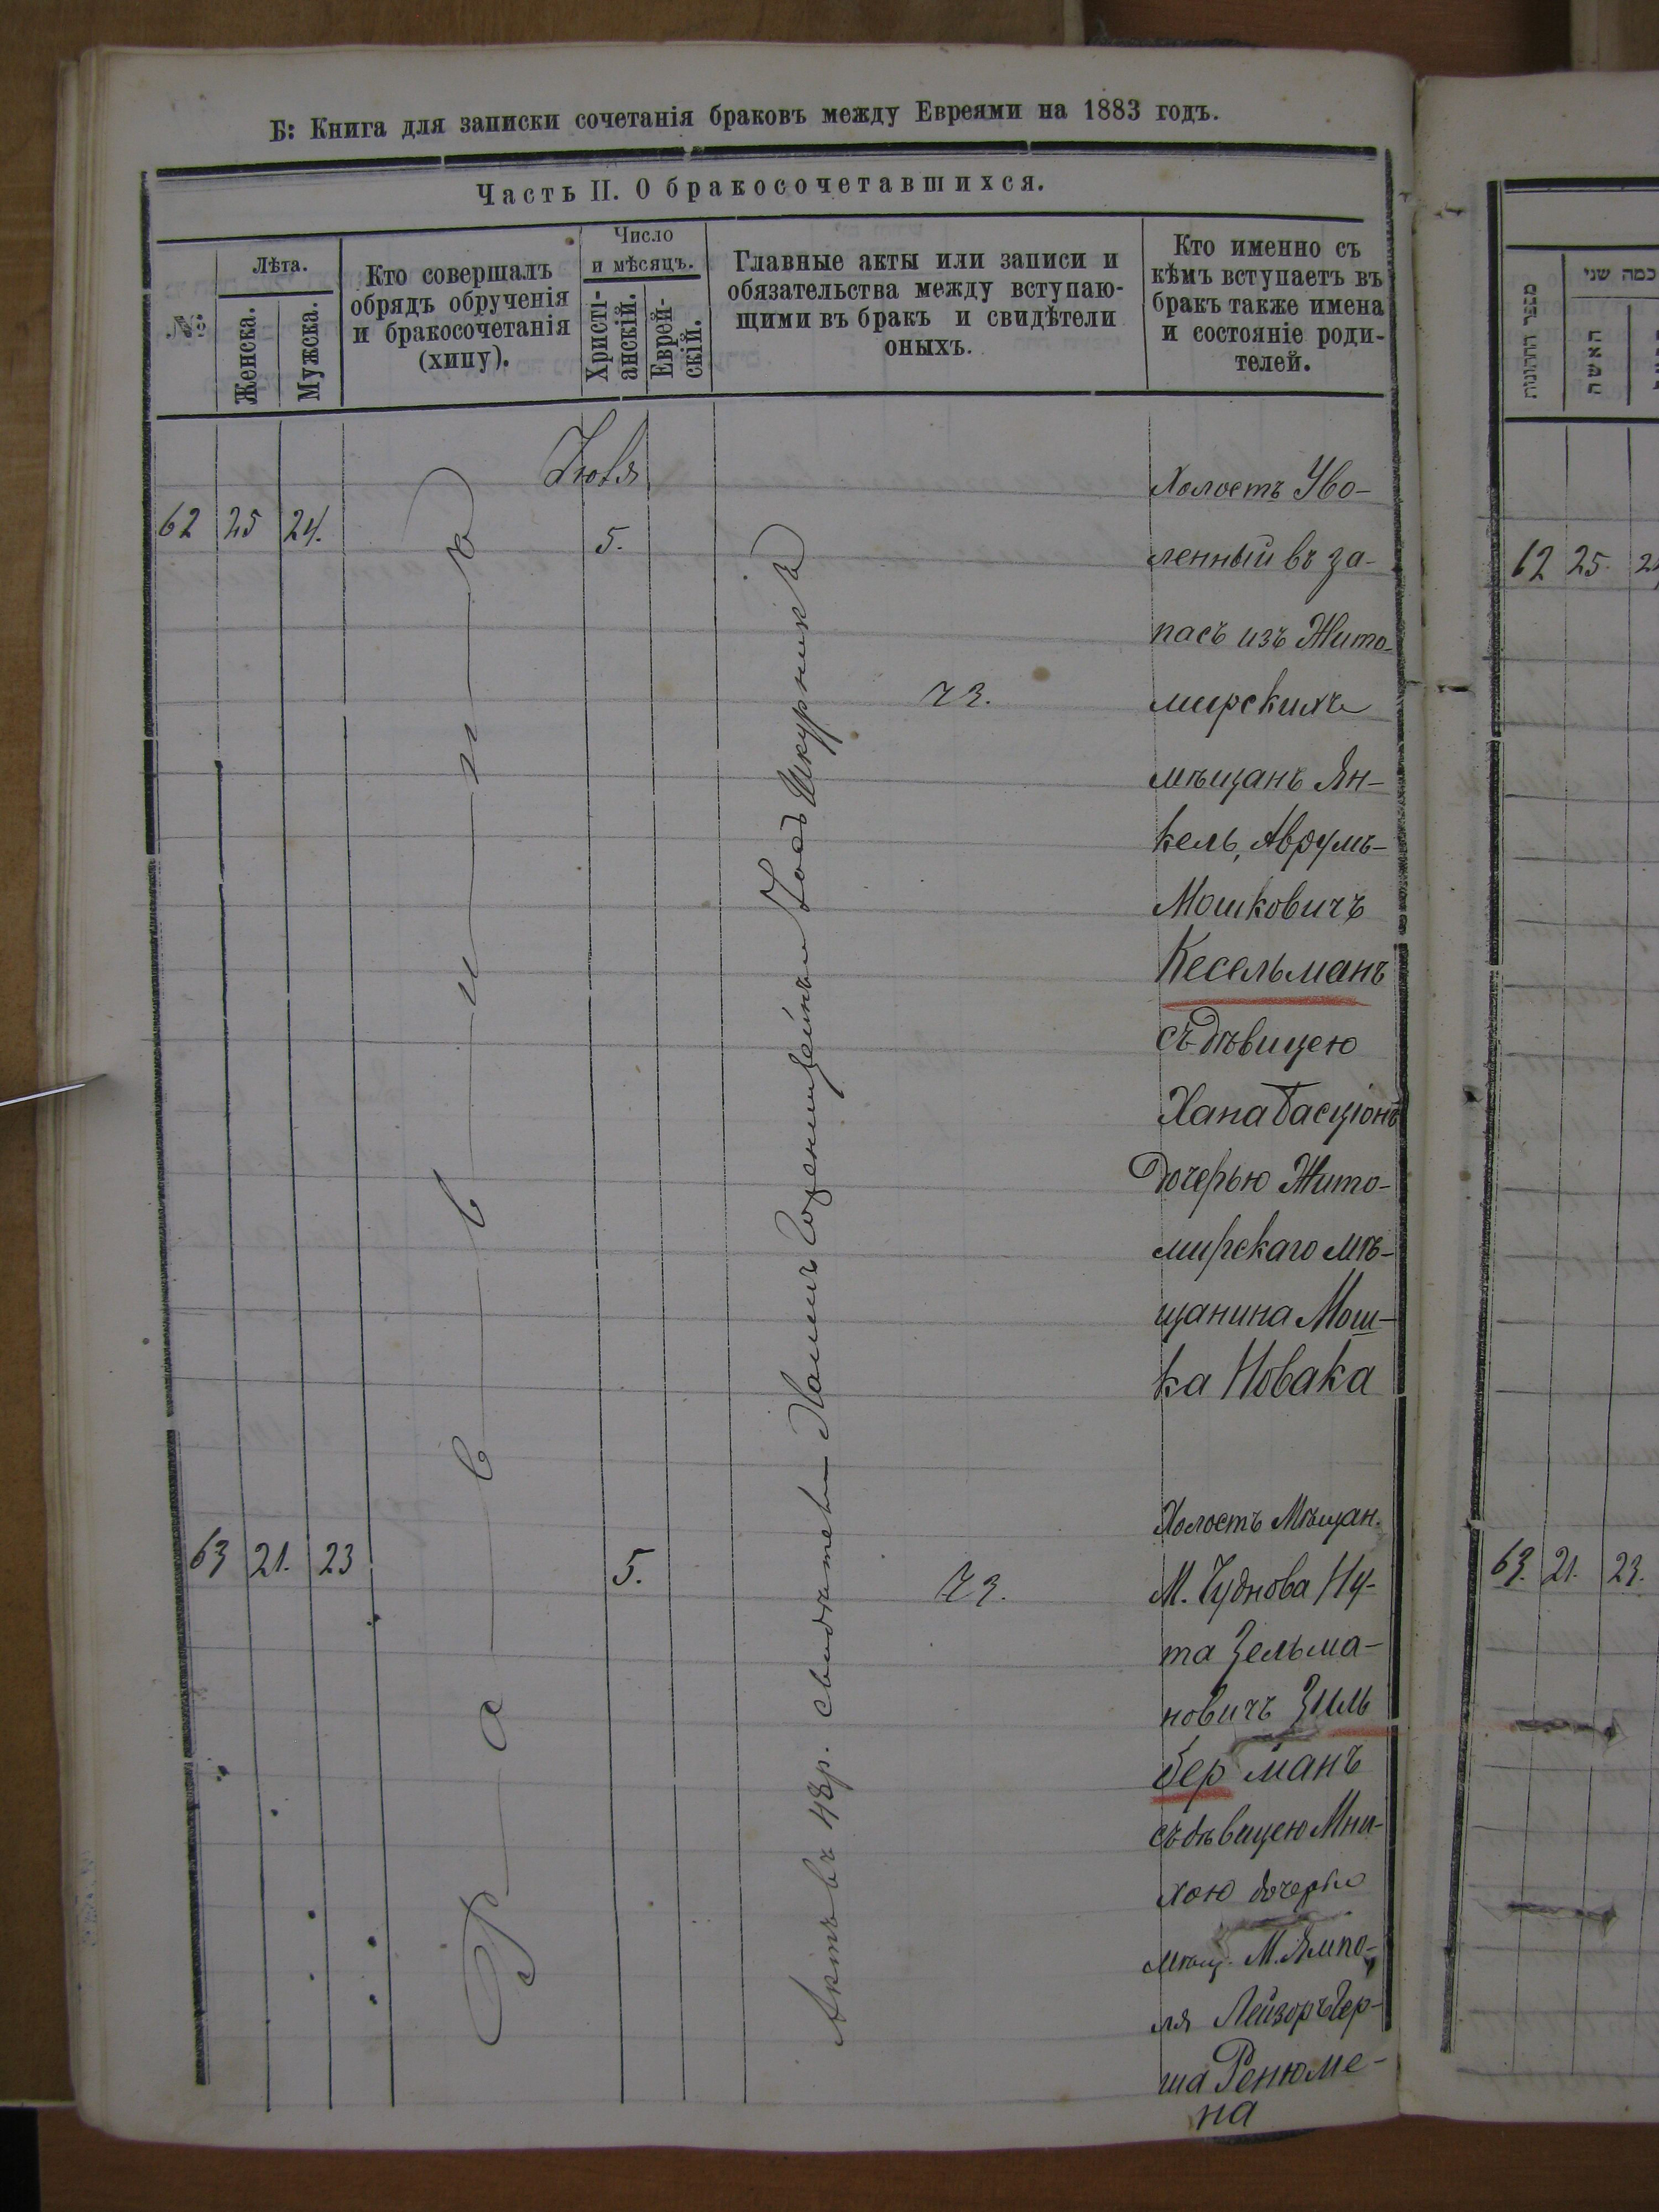 Б: Книга для записки сочетанія браковъ между Евреями на 1883 годъ.
Часть II. О бракосочетавшихся.
№:
Лѣта.
Женска.
Мужска.
Кто совершалъ
обрядъ обрученія
и бракосочетанія
(хипу).
Число
и мѣсяцъ.
Христі-
анскій.
Еврей-
скій.
Главные акты или записи и
обязательства между вступаю-
щими въ бракъ и свидѣтели
оныхъ.
Кто именно съ
кѣмъ вступаетъ въ
бракъ также имена
и состояніе роди-
телей.
62 25 24.
Раввинъ
5.
Актъ въ 48 р. свидѣтели
Шкурникъ
73.
Холостъ Уво-
ленный въ за-
пасъ изъ Жито-
мирскихъ
мѣщанъ Ян-
кель, Аврумъ-
Мошковичъ
Кесельманъ
съ дѣвицею
Хана Басціонъ
Дочерью Жито-
мирскаго мѣ-
щанина Мош-
ка Новака
63 21. 23
5.
73.
Холостъ Мѣщан.
М. Чуднова Ну-
та Зельма-
новичъ Зиль
бер манъ
съ дѣвицею Мни-
хою дочерью
мѣщ. М. Ямпо-
ля Лейзоръ Гер-
ша Ренюме-
на
מספר החתונות
כמה שני
האשה
62 25. 24
63. 21. 23.